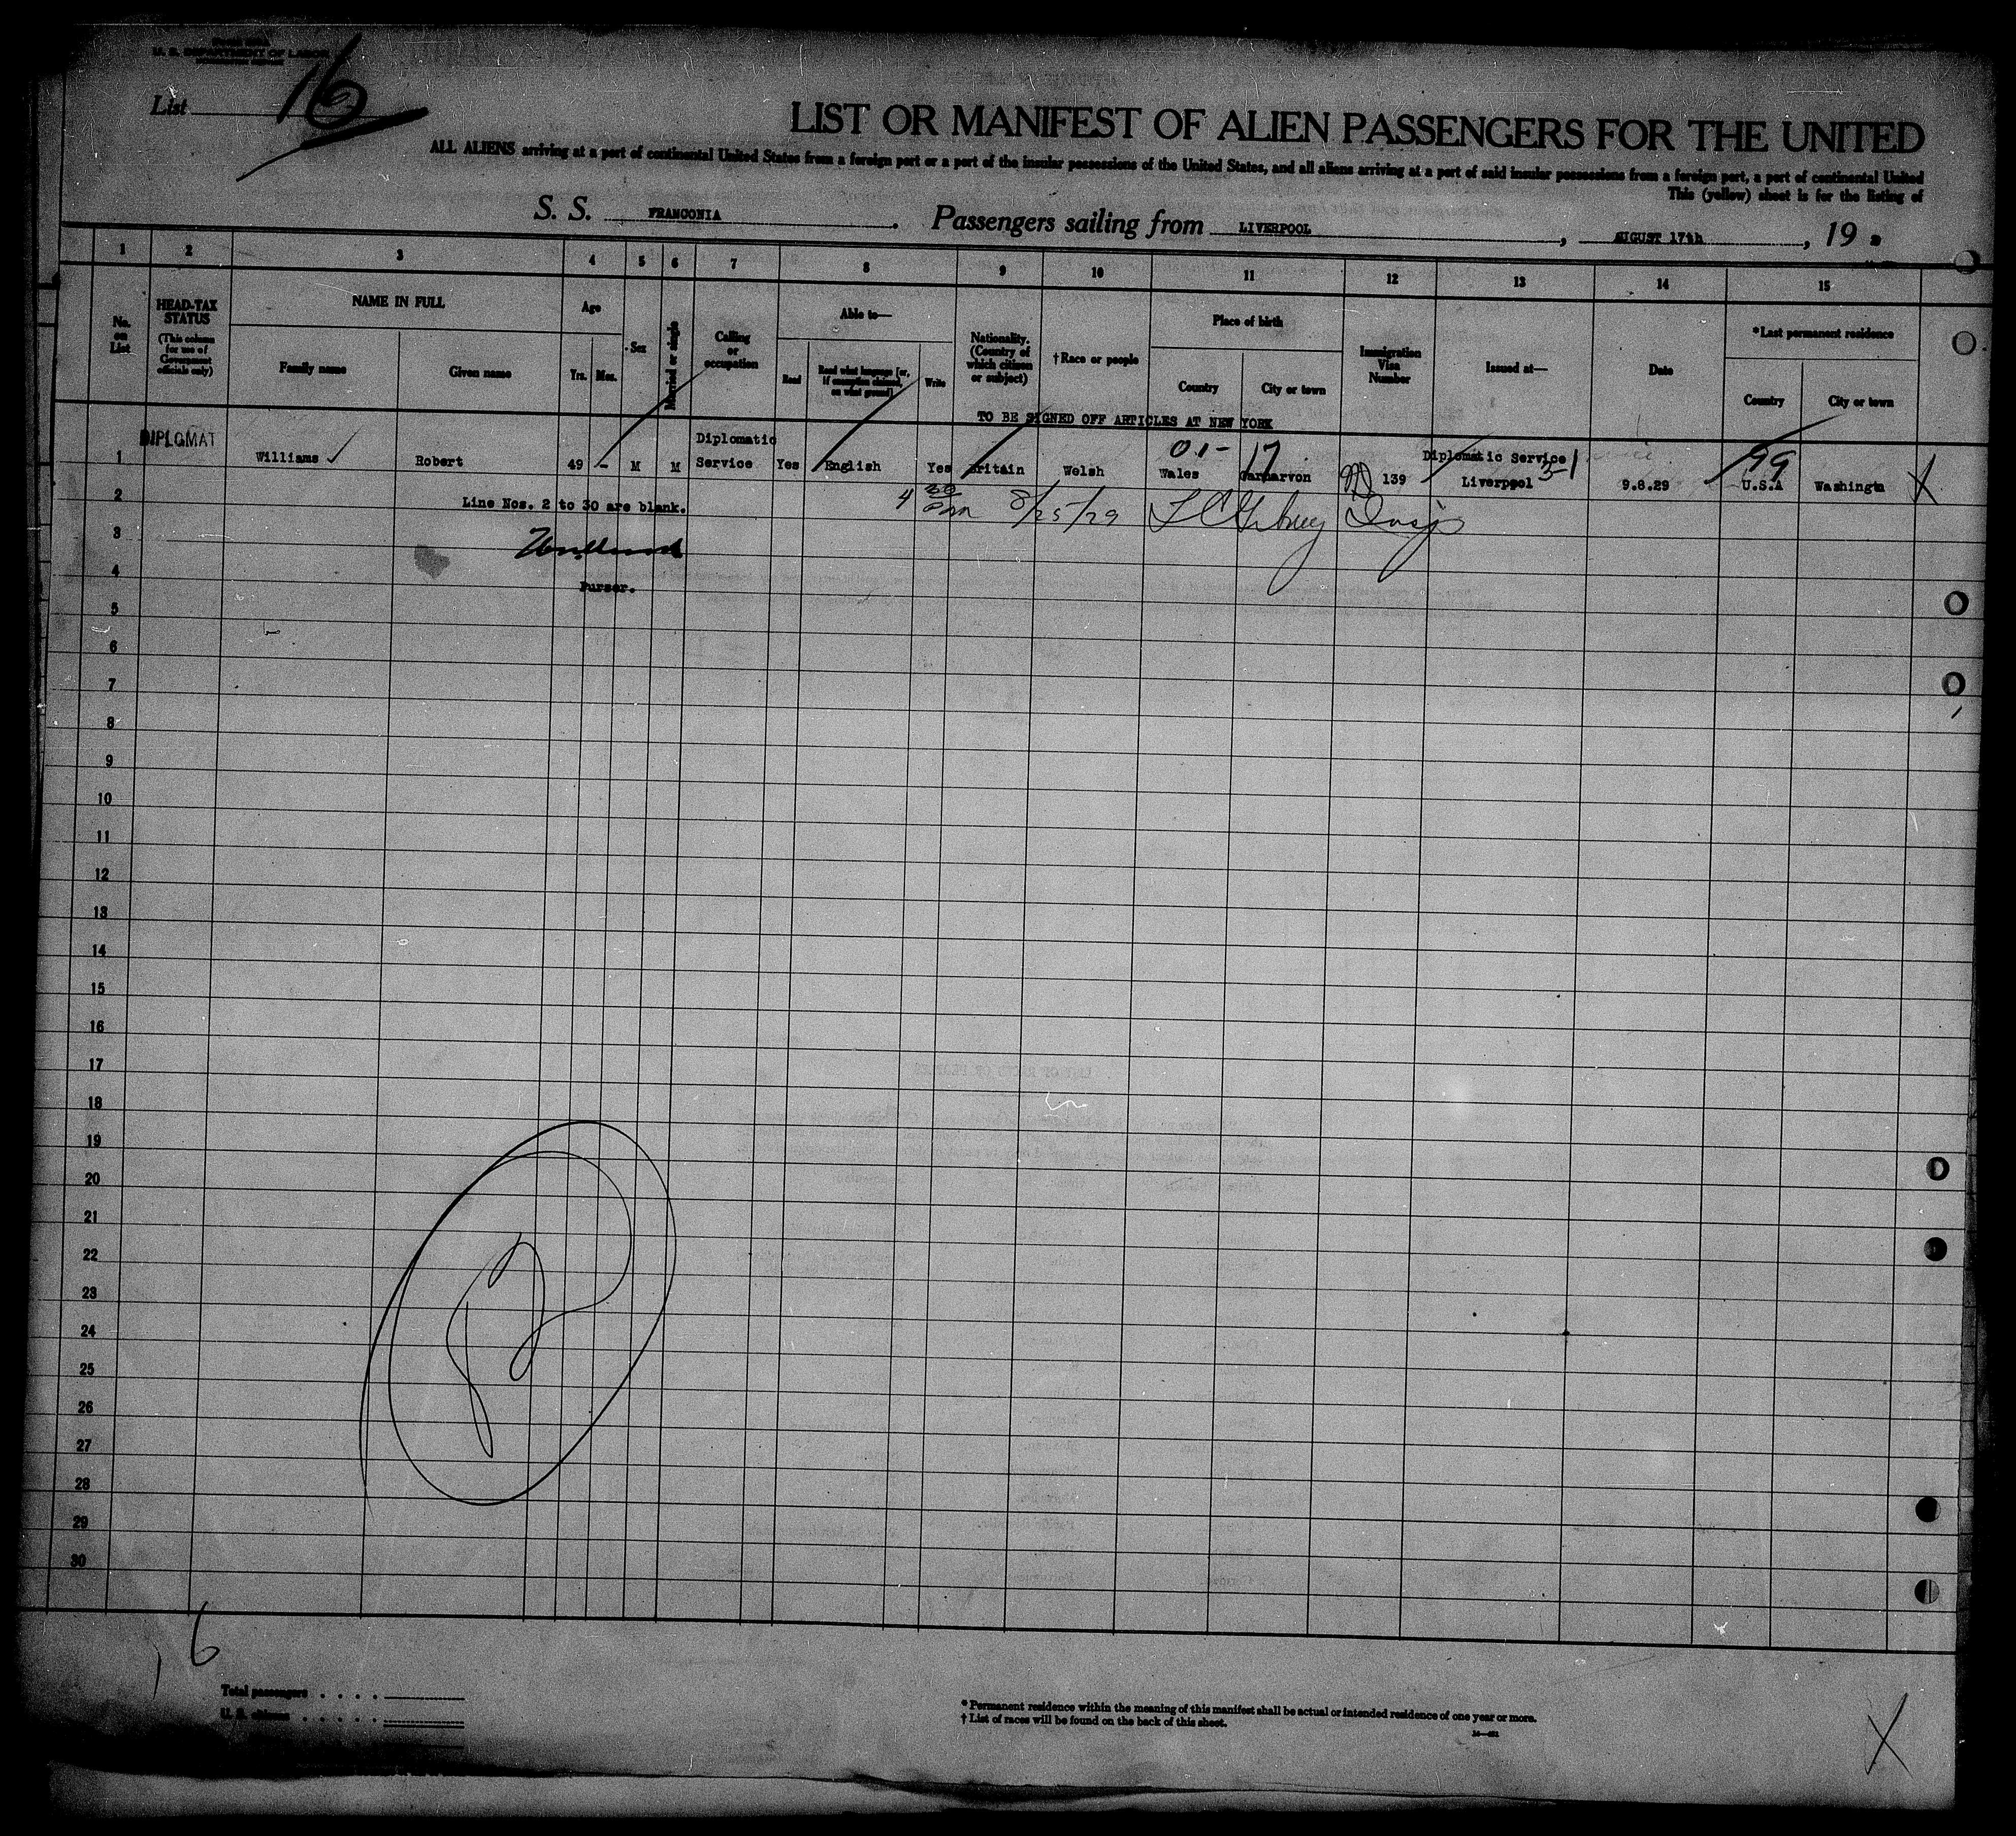 U. S. DEPARTMENT OF LABOR
List 16
LIST OR MANIFEST OF ALIEN PASSENGERS FOR THE UNITED
ALL ALIENS arriving at a port of continental United States from a foreign port or a port of the insular possessions of the United States, and all aliens arriving at a port of said insular possessions from a foreign port, a port of continental United
This (yellow) sheet is for the listing of
S. S. FRANCONIA. Passengers sailing from LIVERPOOL, AUGUST 17th, 19
1 2 3 4 5 6 7 8 9 10 11 12 13 14 15
No. on List
HEAD-TAX STATUS
(This column for use of Government officials only)
NAME IN FULL
Family name
Given name
Age
Yrs. Mos.
Sex
Married or single
Calling or occupation
Able to—
Read
Read what language [or, if exemption claimed, on what ground]
Write
Nationality. (Country of which citizen or subject)
†Race or people
Place of birth
Country
City or town
Immigration Visa Number
Issued at—
Date
*Last permanent residence
Country
City or town
TO BE SIGNED OFF ARTICLES AT NEW YORK
01- 17 99
1 DIPLOMAT Williams ✓ Robert 49 - M M Diplomatic Service Yes English Yes Britain Welsh Wales Carnarvon 139 Diplomatic Service Liverpool 51 9.8.29 U.S.A Washingtn X
2 Line Nos. 2 to 30 are blank. 4 30 pm 8/25/29 Insp
3
4 Purser.
5
6
7
8
9
10
11
12
13
14
15
16
17
18
19
20
21
22
23
24
25
26
27
28
29
30
6
Total passengers . . . .
U. S. citizens . . . . .
* Permanent residence within the meaning of this manifest shall be actual or intended residence of one year or more.
† List of races will be found on the back of this sheet.
X